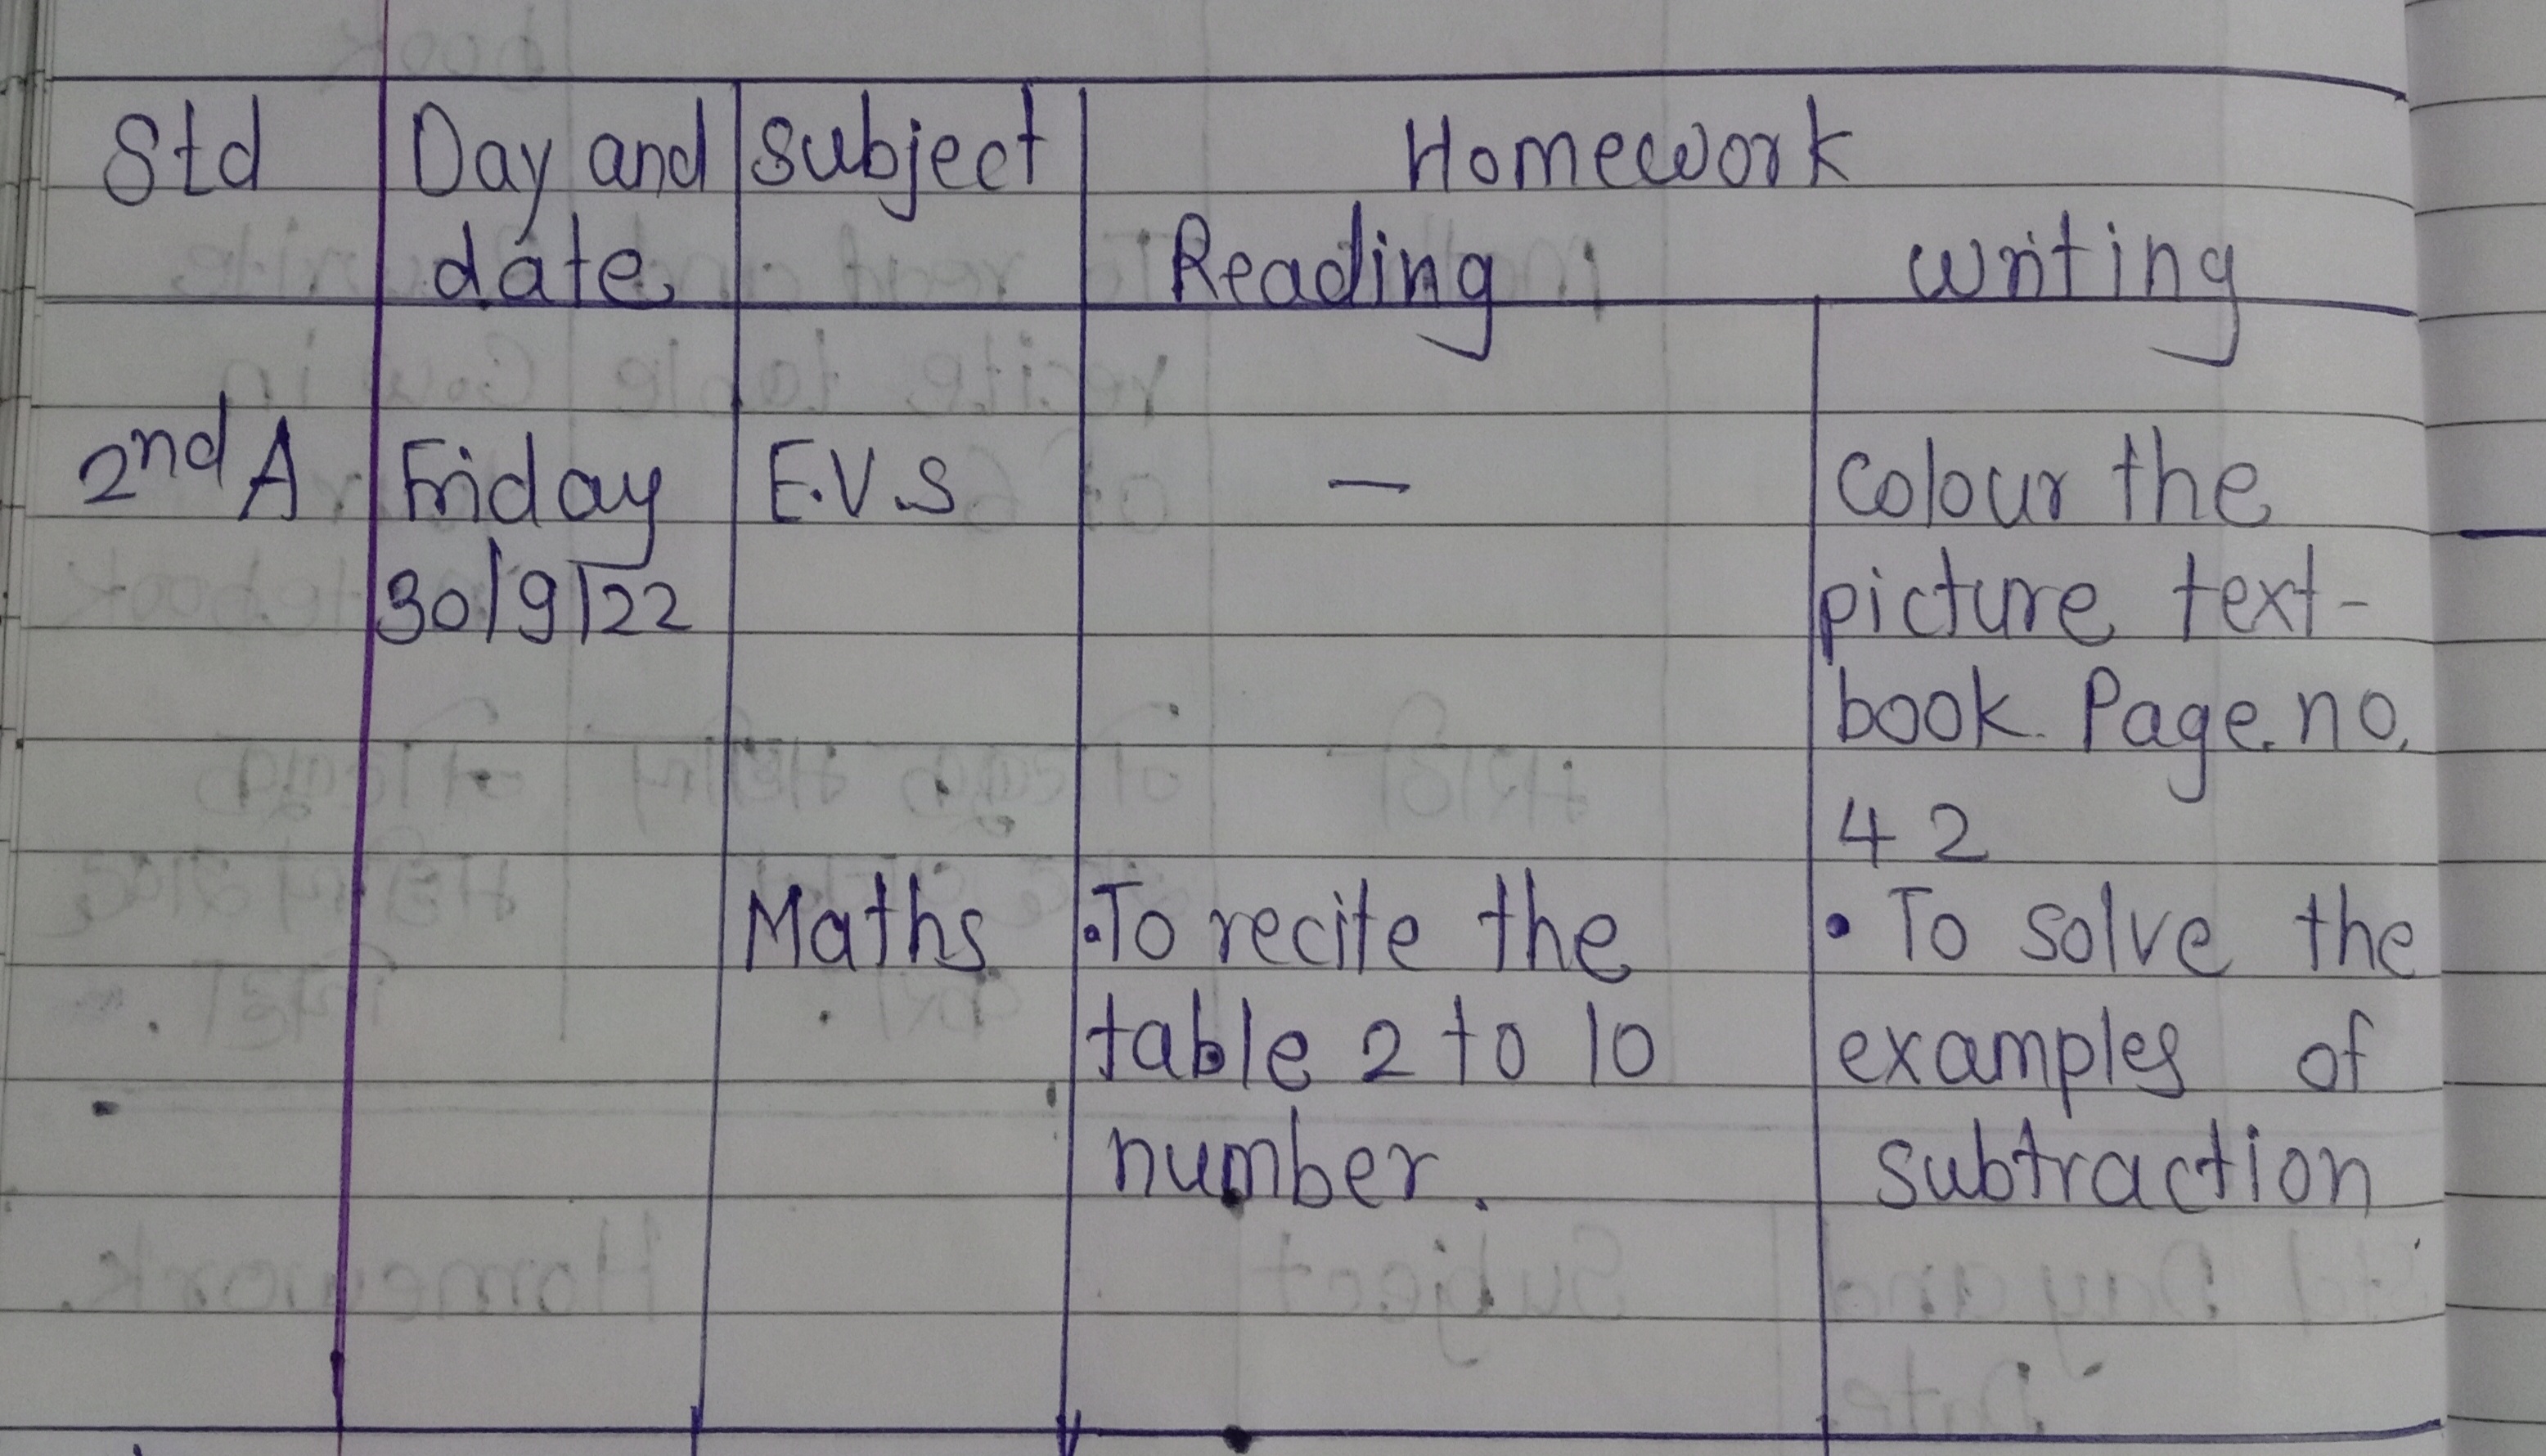 Std Day and subject Homework
date Reading writing
2nd A Friday E.V.S — Colour the
30/9/22 picture text-
book. Page no.
42
Maths •To recite the • To solve the
table 2 to 10 examples of
number. subtraction